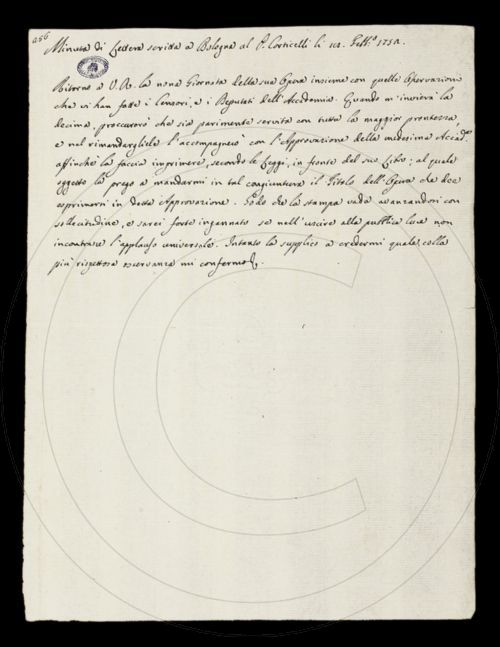 256
Minuta di Lettera scritta a Bologna al P. Corticelli li Febb.º 1752.
Ritorno a V. R. la nona Giornata della sua Opera insieme con quelle Osservazioni
che vi han fatte i Censori, e i Deputati dell'Accademia. Quando m'invierà la
decima, procurerò che sia parimente servita con tutta la maggior prontezza,
e nel rimandargliela l'accompagnerò con l'Approvazione della medesima Accad.ª
affinchè la faccia imprimere, secondo le Leggi, in fronte del suo Libro; al quale
oggetto la prego a mandarmi in tal congiuntura il Titolo dell'Opera che dee
esprimersi in detta Approvazione. Godo che la stampa vada avanzandosi con
sollecitudine, e sarei forte ingannato se nell'uscire alla pubblica luce non
incontrasse l'applauso universale. Intanto la supplico a credermi quale colla
più rispettosa osservanza mi confermo